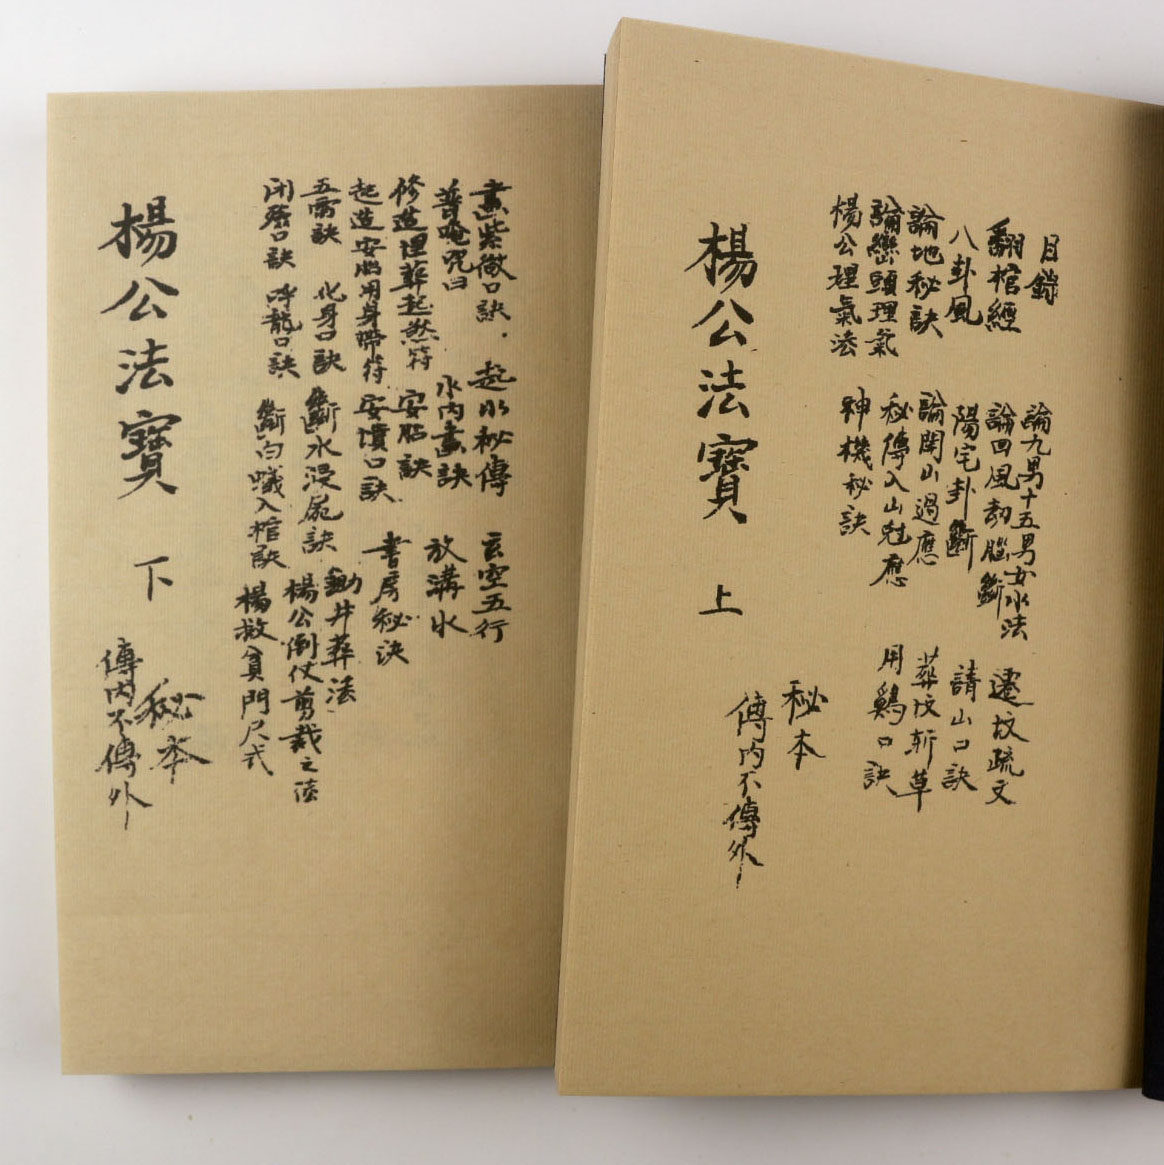 目錄
翻棺經
論九男十五男女水法
八卦風
論四風刼腦斷
遷墳疏文
論地秘訣
陽宅卦斷
請山口訣
論巒頭理氣
論開山過應
葬墳斬草
楊公理氣法
秘傳入山尅應
用鷄口訣
神機秘訣
楊公法寶
上
秘本
傳內不傳外
畫紫微口訣
起水秘傳
玄空五行
普唵咒曰
水內畫訣
放溝水
修造埋葬起煞符
安胎訣
書房秘訣
起造安胎用身帶符
安墳口訣
動井葬法
五雷訣
化身口訣
斷水浸屍訣
楊公倒仗剪裁之法
口訣
呼龍口訣
斷白蟻入棺訣
楊救貧門尺式
楊公法寶
下
秘本
傳內不傳外